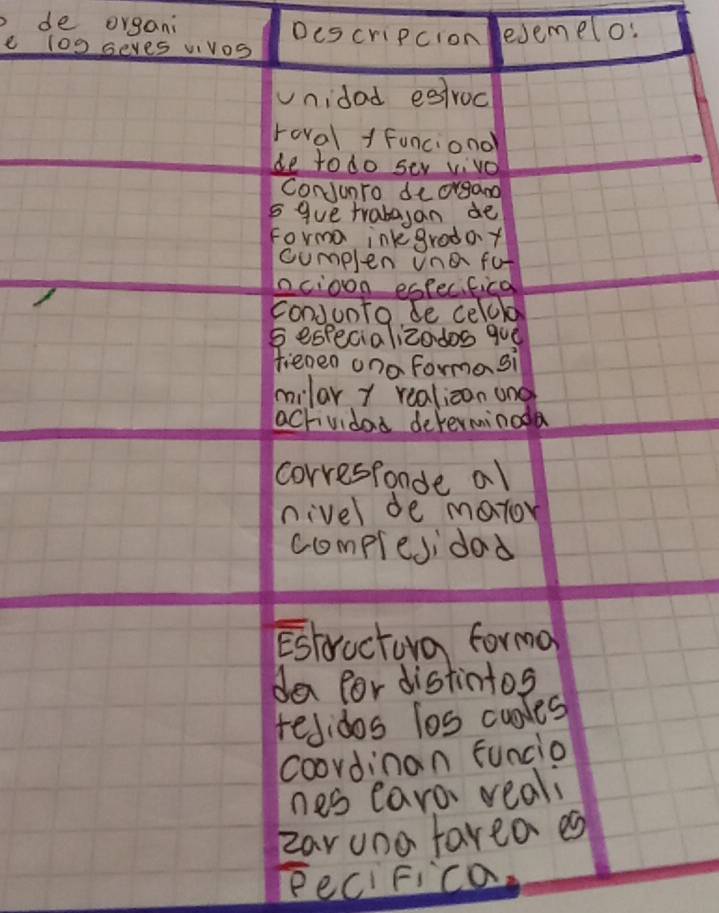 de organi
los seres vivos
Descripcion
ejemplo:
unidad estruc
tural y funcional
de todo ser vivo
Conjunto de organo
s que trabajan de
forma integrada y
cumplen una fu-
ncioon especifica
conjunto de celula
s especializados que
tienen una forma si
milar y realizan una
actividad determinada
corresponde al
nivel de mayor
complejidad
Estructura forma
da por distintos
tejidos los cuales
coordinan funcio
nes para reali
zar una tarea es
pecifica.